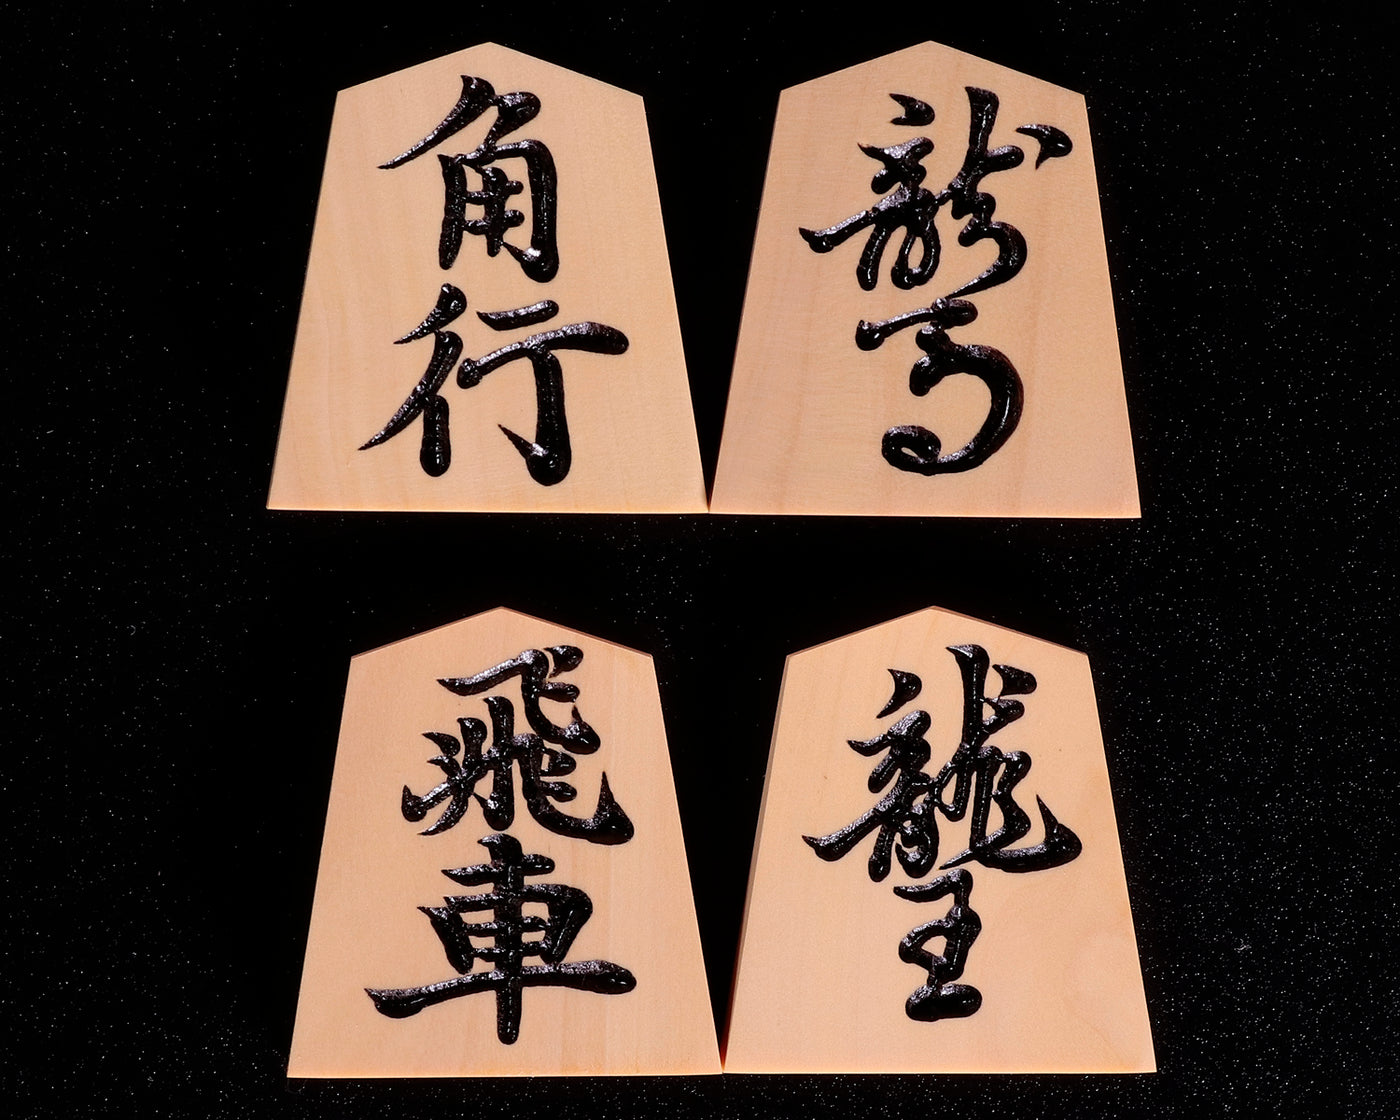 角行
龍馬
飛車
龍王